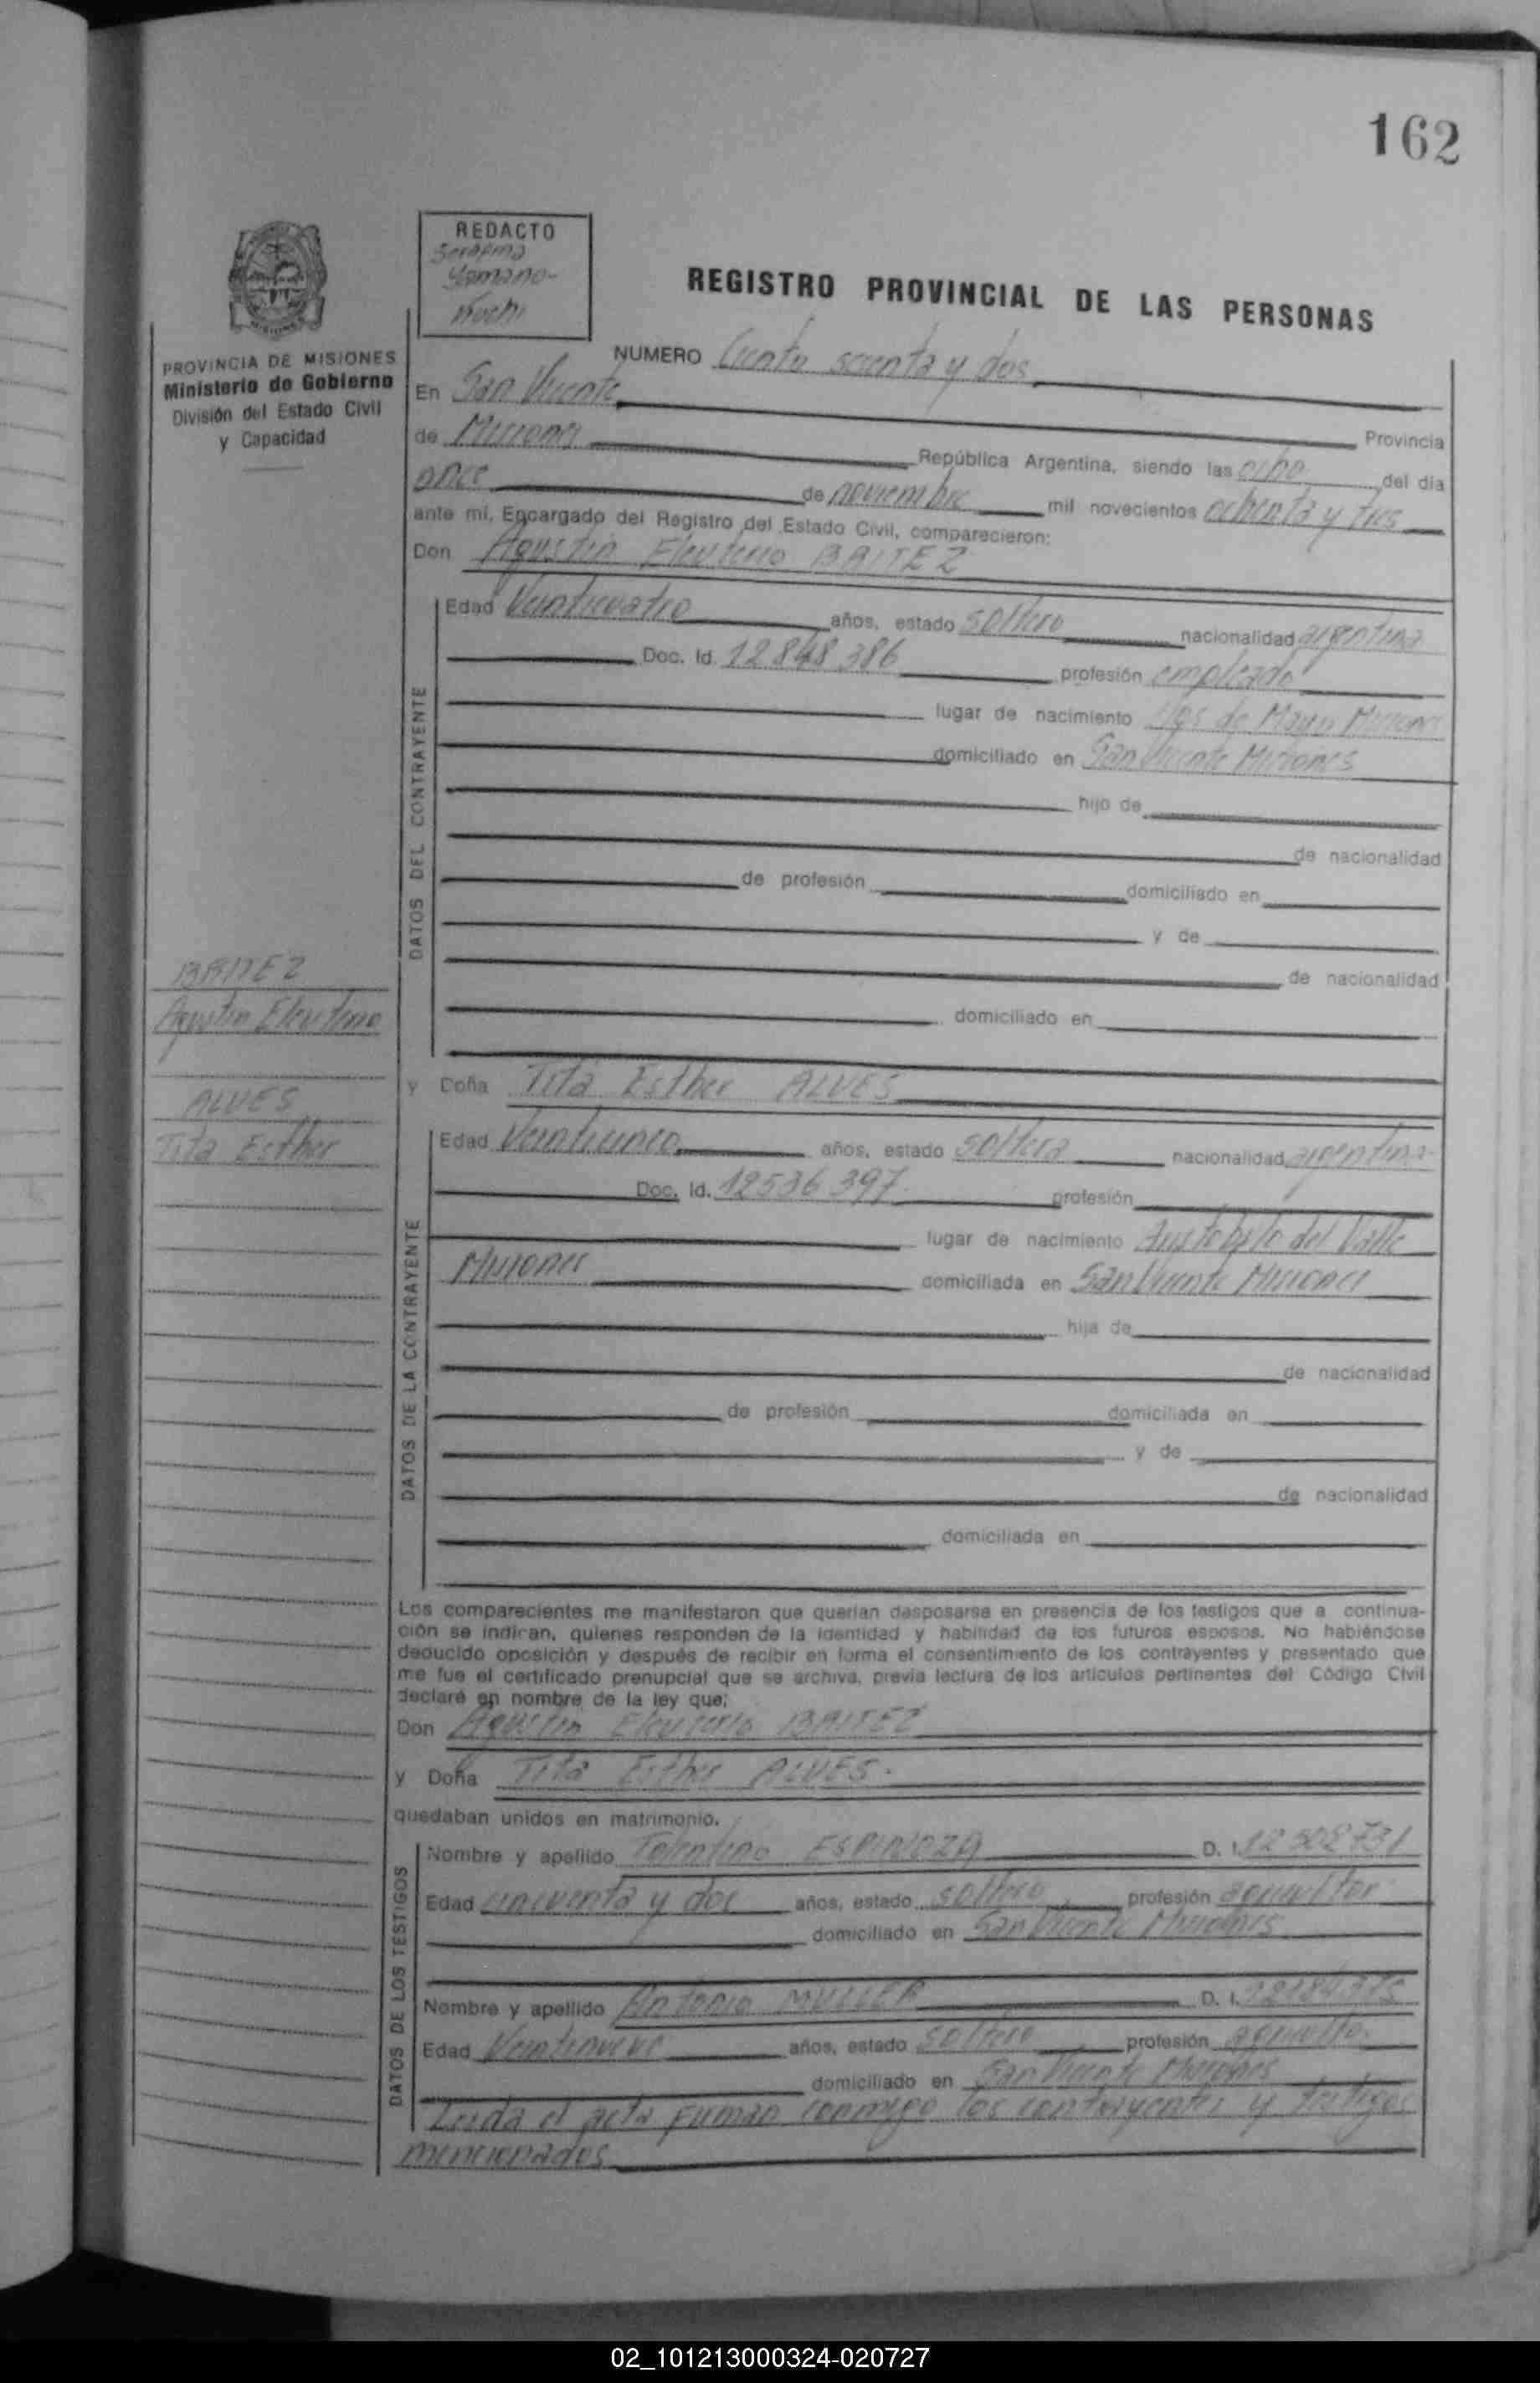 162
REDACTO
Serafina
PROVINCIA DE MISIONES
Ministerio de Gobierno
División del Estado Civil
y Capacidad
REGISTRO PROVINCIAL DE LAS PERSONAS
NUMERO Ciento sesenta y dos
En San Vicente Provincia
de Misiones República Argentina, siendo las ocho del día
once de noviembre mil novecientos ochenta y tres
ante mí, Encargado del Registro del Estado Civil, comparecieron:
Don Agustin Eleuterio BAITEZ
DATOS DEL CONTRAYENTE
Edad Veinticuatro años, estado soltero nacionalidad argentina
Doc. Id. 12848386 profesión empleado
lugar de nacimiento de Mayo Misiones
domiciliado en San Vicente Misiones
hijo de
de nacionalidad
de profesión domiciliado en
y de
de nacionalidad
domiciliado en
BAITEZ
Agustin Eleuterio
ALVES
Tita Esther
y Doña Tita Esther ALVES
DATOS DE LA CONTRAYENTE
Edad Veinticinco años, estado soltera nacionalidad argentina
Doc. Id. 12536397 profesión
lugar de nacimiento Aristobulo del Valle
Misiones domiciliada en San Vicente Misiones
hija de
de nacionalidad
de profesión domiciliada en
y de
de nacionalidad
domiciliada en
Los comparecientes me manifestaron que querían desposarse en presencia de los testigos que a continua-
ción se indican, quienes responden de la identidad y habilidad de los futuros esposos. No habiéndose
deducido oposición y después de recibir en forma el consentimiento de los contrayentes y presentado que
me fue el certificado prenupcial que se archiva, previa lectura de los artículos pertinentes del Código Civil
declaré en nombre de la ley que:
Don Agustin Eleuterio BAITEZ
y Doña Tita Esther ALVES.
quedaban unidos en matrimonio.
DATOS DE LOS TESTIGOS
Nombre y apellido Tolentino ESPINOZA D. I. 12508731
Edad cincuenta y dos años, estado soltero profesión agricultor
domiciliado en San Vicente Misiones
Nombre y apellido Antonio MULLER D. I.
Edad Veintinueve años, estado soltero profesión agricultor
domiciliado en San Vicente Misiones
Leida el acta firman conmigo los contrayentes y testigos
mencionados
02_101213000324-020727